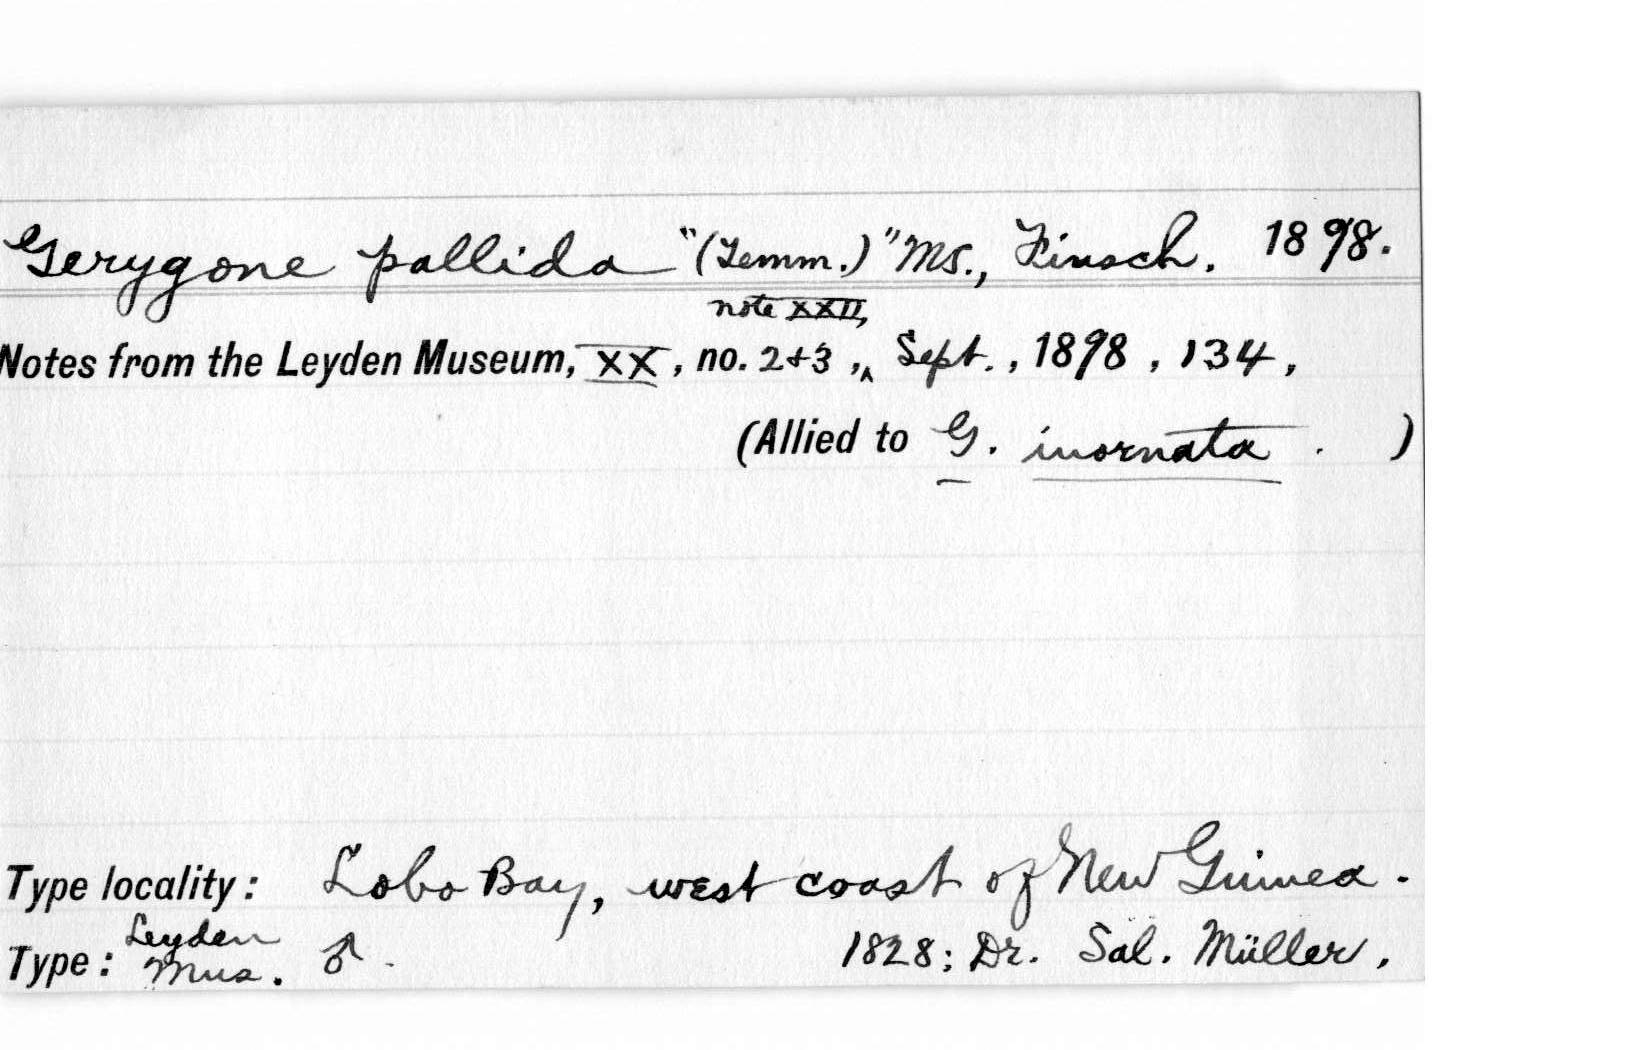 Gerygone pallida "(Temm.)" MS., Finsch. 1898.
note XXII,
Notes from the Leyden Museum, XX, no. 2+3 ,‸ Sept., 1898, 134,
(Allied to G. inornata . )
Type locality: Lobo Bay, west coast of New Guinea.
Type: Leyden Mus. ♂. 1828; Dr. Sal. Müller.